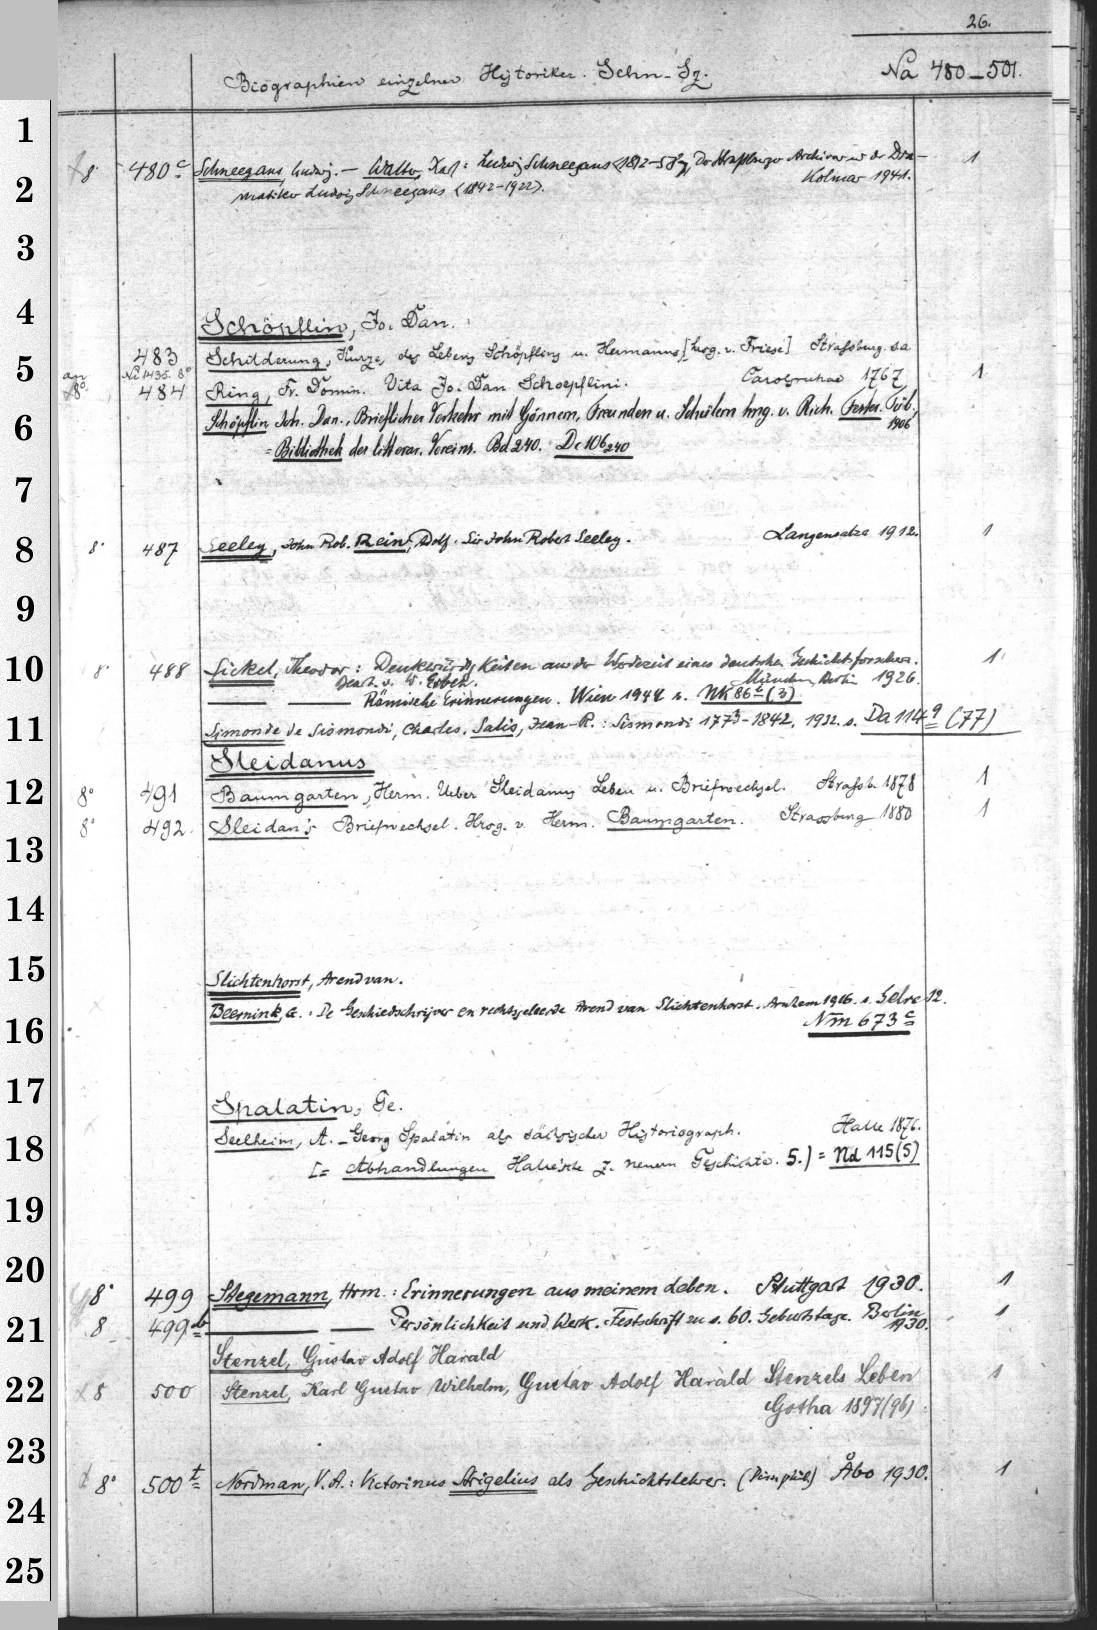 26.
Biographien einzelner Historiker. Schn-Sz. Na 480-501.
8° 480c Schneegans, Ludwig. — Walter, Karl: Ludwig Schneegans <1812-58>, Der Straßburger Archivar u. der Dra- 1
matiker Ludwig Schneegans <1842-1922>. Kolmar 1941.
Schöpflin, Jo. Dan.
483 Schilderung, Kurze, des Lebens Schöpflins u. Hermanns [hrog. v. Friese] Strafsburg. sa
an Na 1435. 8°
8° 484 Ring, Fr. Domin. Vita Jo. Dan Schoepflini. Carolsruhae 1767, 1
Schöpflin Joh. Dan., Brieflicher Verkehr mit Gönnern, Freunden u. Schülern hrsg. v. Rich. Fester. Tüb.
1906
= Bibliothek des litterar. Vereins. Bd 240. Dc 106 240
8° 487 Seeley, John Rob. Rein, Adolf. Sir John Robert Seeley. Langensalza 1912. 1
8° 488 Sickel, Theodor: Denkwürdigkeiten aus der Werdezeit eines deutschen Geschichtsforschers. 1
Bearb. v. W. Erben. München, Berlin 1926.
Römische Erinnerungen. Wien 1947 s. NK 86c (3)
Simonde de Sismondi, Charles. Salis, Jean-R.: Sismondi 1773-1842. 1932. s. Da 114g (77)
Sleidanus
8° 491 Baumgarten, Herm. Ueber Sleidanus Leben u. Briefwechsel. Strafsb. 1878 1
8° 492. Sleidan's Briefwechsel. Hrog. v. Herm. Baumgarten. Strassburg 1880 1
Slichtenhorst, Arend van.
Beernink, G. De Geschiedschrijver en rechtsgeleerde Arend van Slichtenhorst. Arnhem 1916. s. Gelre 12.
Nm 673c
Spalatin, Ge.
Seelheim, A. - Georg Spalatin als sächsischer Historiograph. Halle 1876.
[= Abhandlungen Hallesche z. neuern Geschichte. 5.] = Nd 115(5)
8° 499 Stegemann, Hrm.: Erinnerungen aus meinem Leben. Stuttgart 1930. 1
8 499b Persönlichkeit und Werk. Festschrift zu s. 60. Geburtstage. Berlin 1
1930.
Stenzel, Gustav Adolf Harald
8 500 Stenzel, Karl Gustav Wilhelm, Gustav Adolf Harald Stenzels Leben 1
Gotha 1897(96)
8° 500t Nordman, V. A.: Victorinus Strigelius als Geschichtslehrer. (Diss phil) Åbo 1930. 1